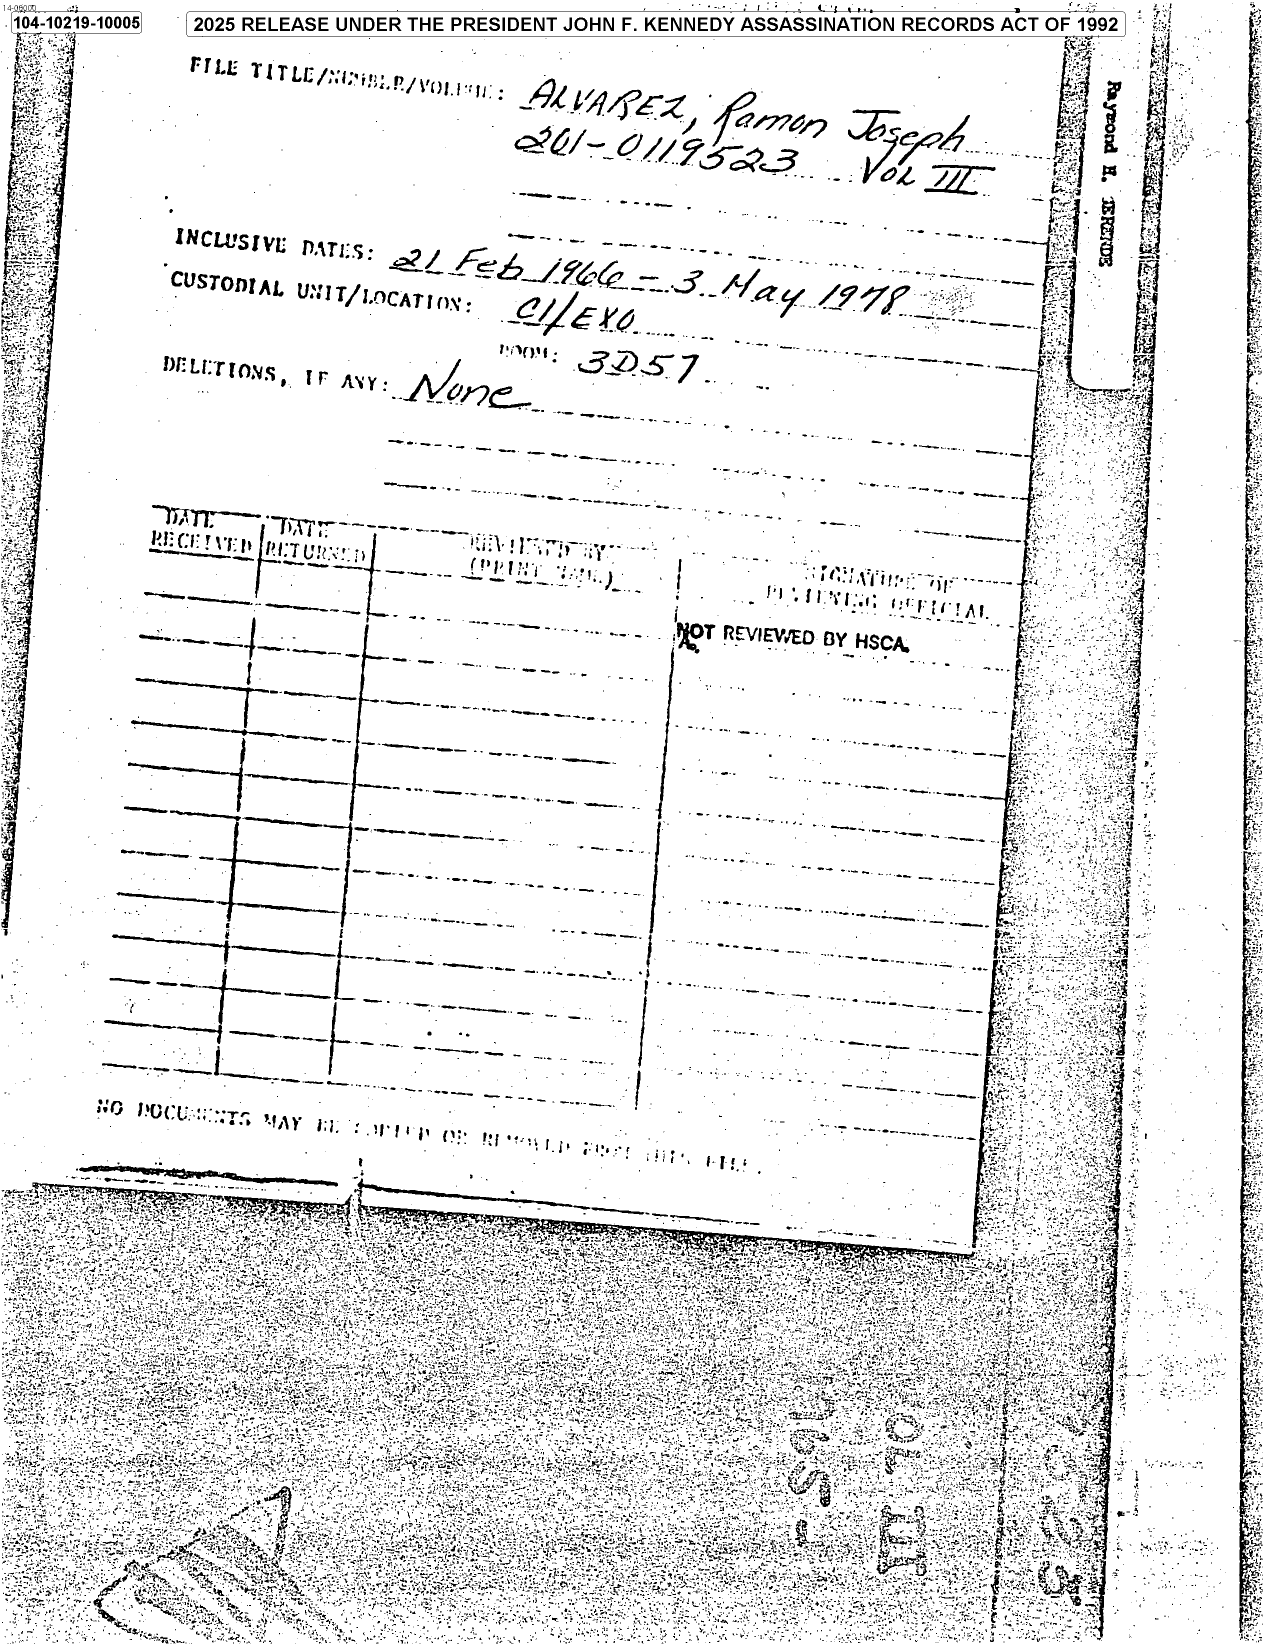 14-00000
104-10219-10005
2025 RELEASE UNDER THE PRESIDENT JOHN F. KENNEDY ASSASSINATION RECORDS ACT OF 1992
FILE TITLE/NUMBER/VOLUME: ALVAREZ, Ramon Joseph
201-0119523 VOL III
INCLUSIVE DATES: 21 Feb 1966 - 3 May 1978
CUSTODIAL UNIT/LOCATION: CI/EXO
ROOM: 3D57
DELETIONS, IF ANY: None
DATE RECEIVED
DATE RETURNED
REVIEWED BY (PRINT NAME)
SIGNATURE OF REVIEWING OFFICIAL
NOT REVIEWED BY HSCA
NO DOCUMENTS MAY BE COPIED OR REMOVED FROM THIS FILE.
Raymond H.
OL III